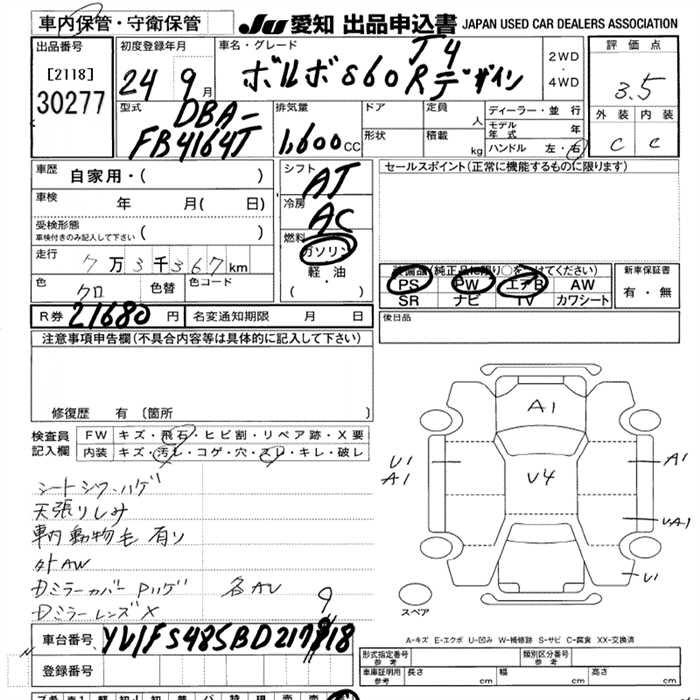 車内保管・守衛保管
JU 愛知 出品申込書 JAPAN USED CAR DEALERS ASSOCIATION
出品番号
[2118]
30277
初度登録年月
24 年 9 月
車名・グレード
ボルボ S60 T4 Rデザイン
2WD
・
4WD
評価点
3.5
外装 内装
C C
型式
DBA-
FB4164T
排気量
1,600 CC
ドア
形状
定員 人
積載 kg
ディーラー・並行
モデル年式 年
ハンドル 左・右
車歴 自家用・( )
車検 年 月( 日)
受検形態
車検付きのみ記入して下さい ( )
走行 7万3千367km
色 クロ 色替 色コード
シフト AT
冷房 AC
燃料 ガソリン
軽・油
( ・ )
セールスポイント(正常に機能するものに限ります)
装備品(純正品に限り○をつけてください)
PS PW エアB AW
SR ナビ TV カワシート
新車保証書
有・無
R券 21680 円 名変通知期限 月 日
後日品
注意事項申告欄(不具合内容等は具体的に記入して下さい)
修復歴 有 〔箇所 〕
検査員記入欄
FW キズ・飛石・ヒビ割・リペア跡・X要
内装 キズ・汚レ・コゲ・穴・スレ・キレ・破レ
シートシワ・ハゲ
天張りしみ
車内動物毛有り
外AW
Dミラーカバー Pハゲ 各AU
DミラーレンズX
A1
U1
A1
U4
A1
UA1
U1
スペア
A-キズ E-エクボ U-凹み W-補修跡 S-サビ C-腐食 XX-交換済
9
車台番号 YV1FS485BD2179118
登録番号
型式指定番号
参考
類別区分番号
参考
車庫証明記入欄
参考
長さ cm 幅 cm 高さ cm